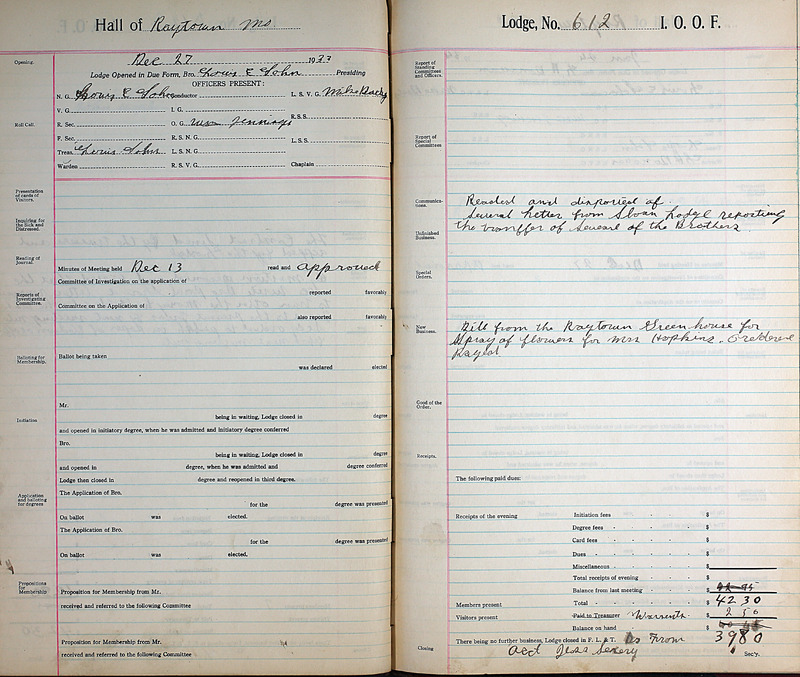 Hall of Raytown Mo
Opening.
Dec 27 1933
Lodge Opened in Due Form, Bro. Louis E John Presiding
OFFICERS PRESENT:
N. G. Louis E John Conductor L. S. V. G. Mike
V. G. I. G. R.S.S.
Roll Call.
R. Sec. O. G. Jennings
F. Sec. R. S. N. G. L.S.S.
Treas. Louis John L. S. N. G.
Warden R. S. V. G. Chaplain
Presentation of cards of Visitors.
Inquiring for the Sick and Distressed.
Reading of Journal.
Minutes of Meeting held Dec 13 read and approved
Committee of Investigation on the application of
Reports of Investigating Committee.
reported favorably
Committee on the Application of
also reported favorably
Balloting for Membership.
Ballot being taken
was declared elected
Mr.
Initiation
being in waiting, Lodge closed in degree
and opened in initiatory degree, when he was admitted and initiatory degree conferred
Bro.
being in waiting, Lodge closed in degree
and opened in degree, when he was admitted and degree conferred
Lodge then closed in degree and reopened in third degree.
Application and balloting for degrees
The Application of Bro.
for the degree was presented
On ballot was elected.
The Application of Bro.
for the degree was presented
On ballot was elected.
Propositions for Membership
Proposition for Membership from Mr.
received and referred to the following Committee
Proposition for Membership from Mr.
received and referred to the following Committee
Lodge, No. 612 I. O. O. F.
Report of Standing Committees and Officers.
Report of Special Committees
Communications.
Readed and disporied of
Several letter from Sloan Lodge reporting
Unfinished Business.
the transffer of several of the Brothers.
Special Orders.
New Business.
Bill from the Raytown Green house for
Spray of flowers for Mrs Hopkins.
Good of the Order.
Receipts.
The following paid dues:
Receipts of the evening Initiation fees $
Degree fees $
Card fees $
Dues $
Miscellaneous $
Total receipts of evening $
Balance from last meeting $
Members present Total $ 42 30
Visitors present Paid to Treasurer Warrents $ 2 50
Balance on hand $
There being no further business, Lodge closed in F. L. & T. 39 80
Closing
act Jess Sec'y.